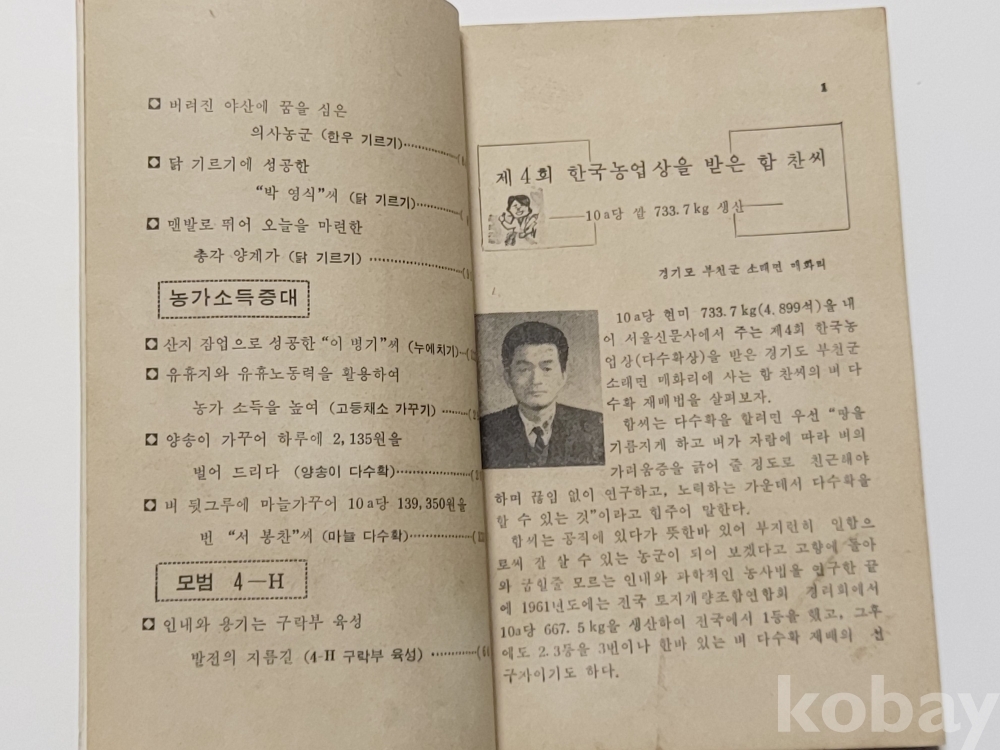 버려진 야산에 꿈을 심은
의사농군 (한우 기르기)
닭 기르기에 성공한
“박 영식”씨 (닭 기르기)
맨발로 뛰어 오늘을 마련한
총각 양계가 (닭 기르기)
농가소득증대
산지 잠업으로 성공한 “이 병기”씨 (누에치기)
유휴지와 유휴노동력을 활용하여
농가 소득을 높여 (고등채소 가꾸기)
양송이 가꾸어 하루에 2,135원을
벌어 드리다 (양송이 다수확)
벼 뒷그루에 마늘가꾸어 10a당 139,350원을
번 “서 봉찬”씨 (마늘 다수확)
모범 4—H
인내와 용기는 구락부 육성
발전의 지름길 (4-H 구락부 육성)
1
제4회 한국농업상을 받은 함 찬씨
10a당 쌀 733.7kg 생산
경기도 부천군 소래면 매화리
10a당 현미 733.7kg(4.899석)을 내
어 서울신문사에서 주는 제4회 한국농
업상(다수확상)을 받은 경기도 부천군
소래면 매화리에 사는 함 찬씨의 벼 다
수확 재배법을 살펴보자.
함씨는 다수확을 할려면 우선 “땅을
기름지게 하고 벼가 자람에 따라 벼의
가려움증을 긁어 줄 정도로 친근해야
하며 끊임 없이 연구하고, 노력하는 가운데서 다수확을
할 수 있는 것”이라고 힘주어 말한다.
함씨는 공직에 있다가 뜻한바 있어 부지런히 일함으
로써 잘 살 수 있는 농군이 되어 보겠다고 고향에 돌아
와 굽힐줄 모르는 인내와 과학적인 농사법을 연구한 끝
에 1961년도에는 전국 토지개량조합연합회 경려회에서
10a당 667.5kg을 생산하여 전국에서 1등을 했고, 그후
에도 2.3등을 3번이나 한바 있는 벼 다수확 재배의 선
구자이기도 하다.
kobay